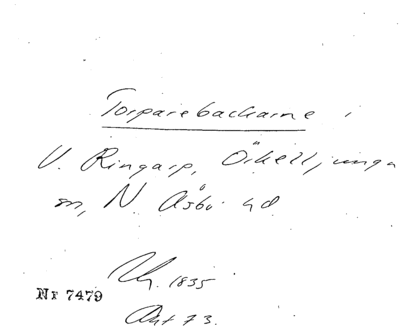 Torparebackarne i
V. Ringarp, Örkelljunga
sn, N. Åsbo hd.
Uh. 1835
Nr 7479
Akt 73.